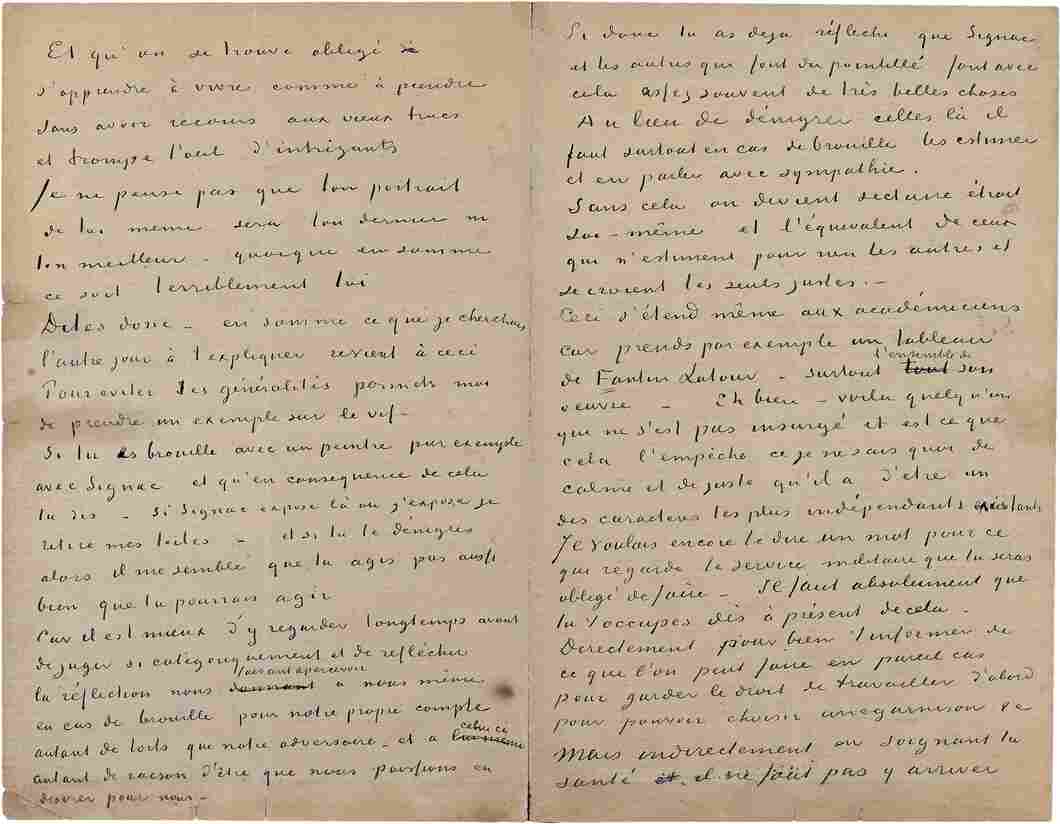 Et qu'on se trouve obligé de
s'apprendre à vivre comme à peindre
sans avoir recours aux vieux trucs
et trompe l'oeil d'intrigants
Je ne pense pas que ton portrait
de toi même sera ton dernier ni
ton meilleur – quoique en somme
ce soit terriblement toi
Dites donc – en somme ce que je cherchais
l'autre jour à t'expliquer revient à ceci
Pour eviter les généralités permets moi
de prendre un exemple sur le vif –
Si tu es brouillé avec un peintre par exemple
avec Signac et qu'en consequence de cela
tu dis – si Signac expose là ou j'expose je
retire mes toiles – et si tu le dénigres
alors il me semble que tu agis pas aussi
bien que tu pourrais agir
Car il est mieux d'y regarder longtemps avant
de juger si categoriquement et de reflechir
faisant apercevoir
la réflection nous donnant a nous même
en cas de brouille pour notre propre compte
celui ci
autant de torts que notre adversaire – et a lui même
autant de raison d'être que nous puissions en
desirer pour nous –
Si donc tu as deja réflechi que Signac
et les autres qui font du pointillé font avec
cela assez souvent de très belles choses
Au lieu de dénigrer celles là il
faut surtout en cas de brouille les estimer
et en parler avec sympathie.
Sans cela on devient sectaire étroit
soi-même et l'équivalent de ceux
qui n'estiment pour rien les autres et
se croient les seuls justes. –
Ceci s'étend même aux académiciens
car prends par exemple un tableau
l'ensemble de
de Fantin Latour – surtout tout son
oeuvre – Eh bien – voila quelqu'un
qui ne s'est pas insurgé et est ce que
cela l'empêche ce je ne sais quoi de
calme et de juste qu'il a d'etre un
des caracteres les plus indépendants existants
Je voulais encore te dire un mot pour ce
qui regarde le service militaire que tu seras
obligé de faire – Il faut absolument que
tu t'occupes dès à présent de cela –
Directement pour bien t'informer de
ce que l'on peut faire en pareil cas
pour garder le droit de travailler d'abord
pour pouvoir choisir une garnison &c
Mais indirectement en soignant ta
santé et. il ne faut pas y arriver